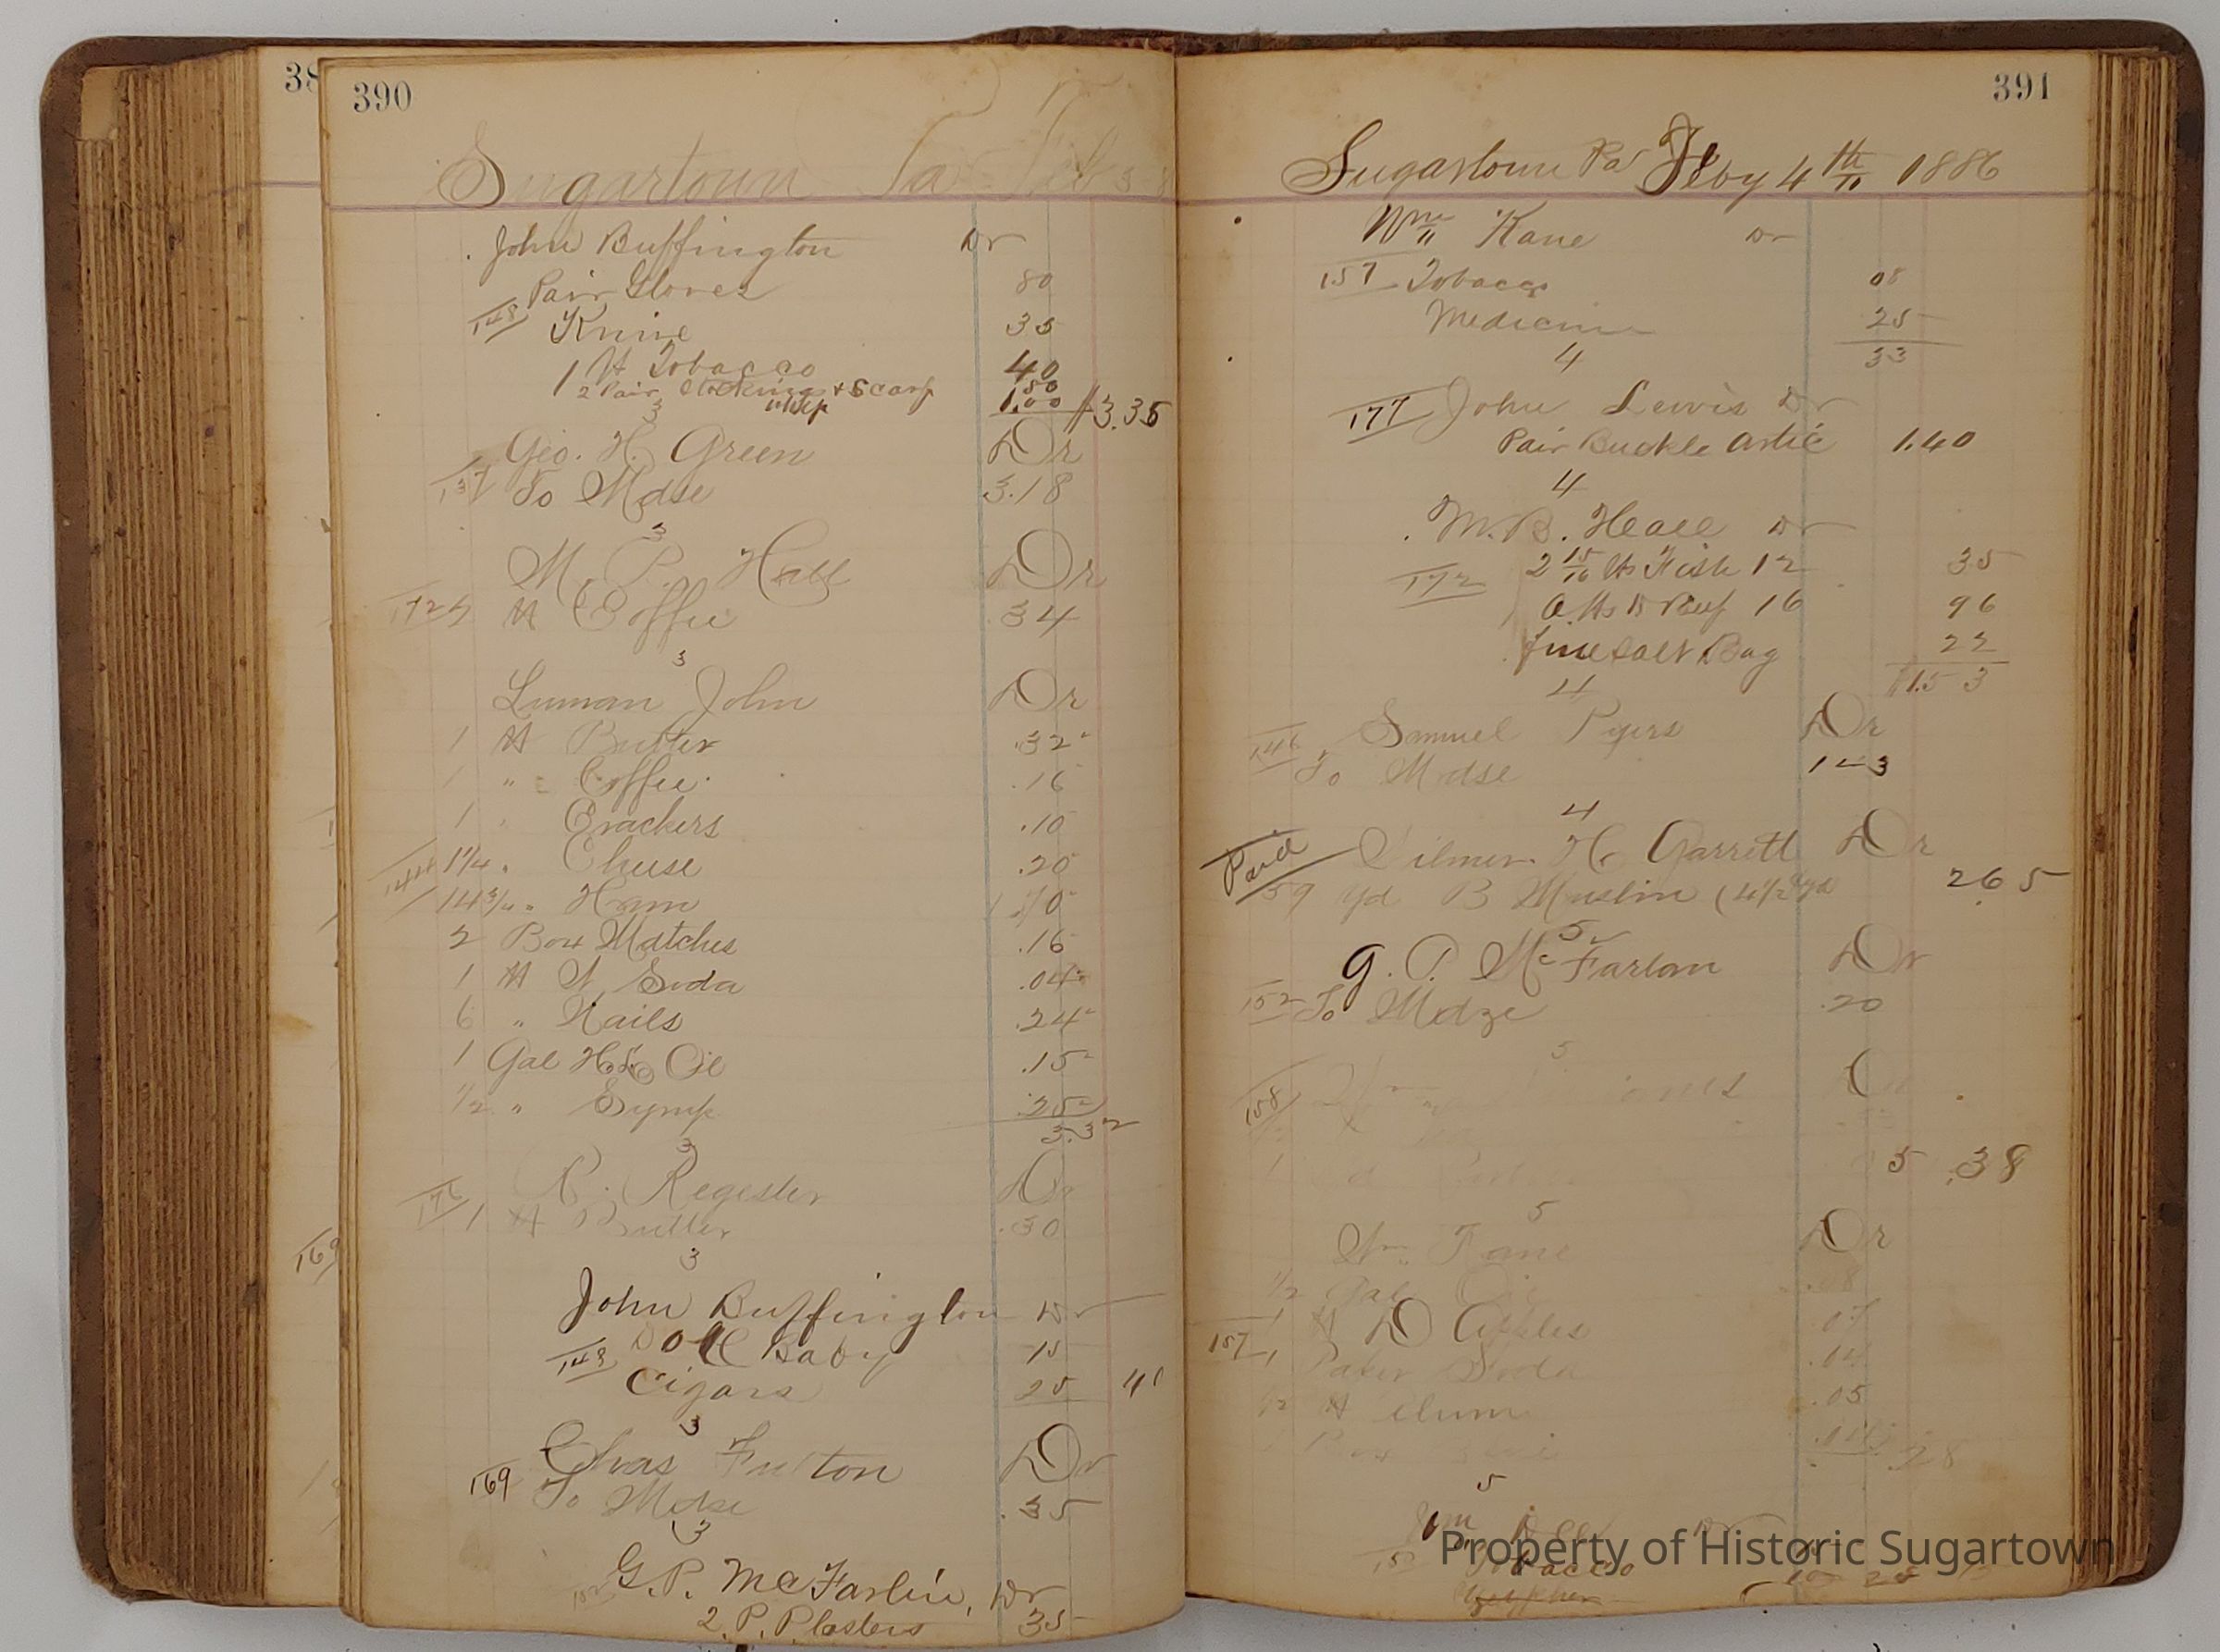 38
390
Sugartown Pa Feb 3
John Buffington Dr
Pair Gloves 80
148
Knive 35
1 lb Tobacco 40
2 Pair Stockings & Scarf 1.50
whip 1.00 $3.35
3
Geo. H. Green Dr
137 To Mdse 3.18
3
M. P. Hall Dr
172 lb Coffee 34
3
Luman John Dr
1 lb Butter .32
1 " Coffee .16
1 " Crackers .10
1 1/4 " Cheese .20
14 3/4 " Ham
2 Box Matches .16
1 lb W Soda .04
6 " Nails .24
1 Gal H L Oil .15
1/2 " Syrup .25
3.32
3
R. Register Dr
176 1 lb Butter .30
3
John Buffington Dr
148 Doll Baby 15
Cigars 25 40
3
Chas Fulton Dr
169 To Mdse .35
3
G. P. McFarlin, Dr
152
2 P. Plasters 35
169
391
Sugartown Pa Feby 4th 1886
Wm Kane Dr
157 Tobacco 08
Medicine 25
4 33
177 John Lewis Dr
Pair Buckle Artic 1.40
4
M. B. Heall Dr
2 15/16 lbs Fish 12 35
172
6 lbs D Beef 16 96
Fine Salt Bag 22
4 $1.53
Samuel Pyers Dr
146 To Mdse 1 23
4
Paid Gilmer H. Garrett Dr
59 yd B Muslin (4 1/2 yd 2.65
5
G. P. McFarlan Dr
152 To Mdze .20
5
158 Dr
1 5 .38
5
Wm Kane Dr
1/2 Gal Oil .08
1 lb D Apples .07
157 1 Paper Soda .04
1/2 lb Alum .05
1 Box 28
5
Dr
Tobacco 10 25
Property of Historic Sugartown